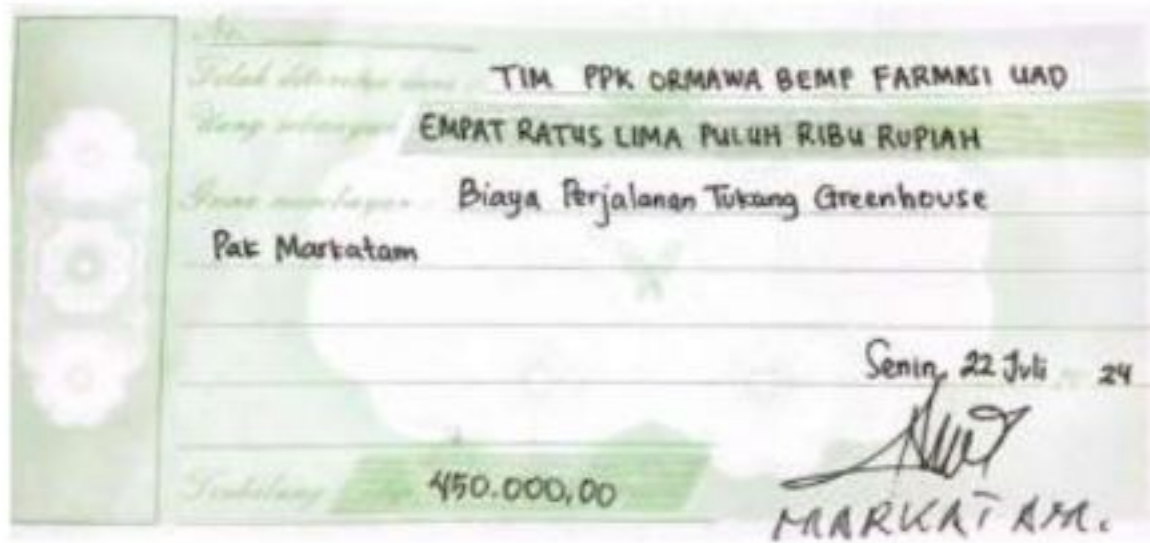 No.
Telah diterima dari TIM PPK ORMAWA BEMF FARMASI UAD
Uang sebanyak EMPAT RATUS LIMA PULUH RIBU RUPIAH
Guna membayar Biaya Perjalanan Tukang Greenhouse
Pak Markatam
Senin, 22 Juli 24
Terbilang 450.000,00
MARKATAM.